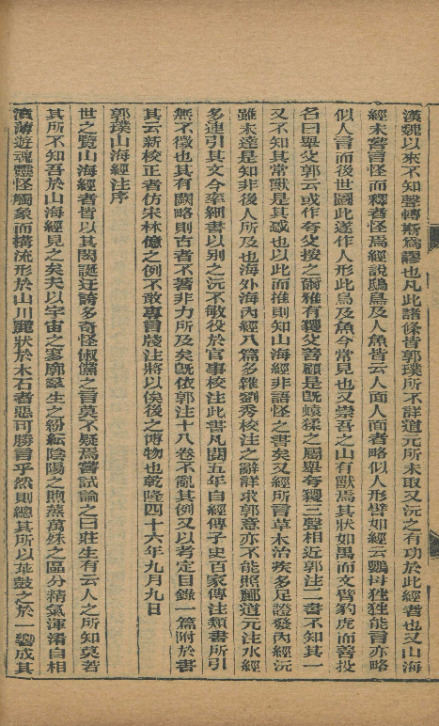 漢魏以來不知聲轉斯為謬也凡此諸條皆郭璞所不詳道元所未取又沅之有功於此經者也又山海
經未嘗言怪而釋者怪焉經說鴟鳥及人魚皆云人面人面者略似人形譬如經云鸚母狌狌能言亦略
似人言而後世圖此遂作人形此鳥及魚今常見也又崇吾之山有獸焉其狀如禺而文臂豹虎而善投
名曰舉父郭云或作夸父按之爾雅有玃父善顧是旣蝯猱之屬舉夸玃三聲相近郭注二書不知其一
又不知其常獸是其惑也以此而推則知山海經非語怪之書矣又經所言草木治疾多足證發內經沅
雖未達是知非後人所及也海外海內經八篇多雜劉秀校注之辭詳求郭意亦不能照酈道元注水經
多連引其文今率細書以別之沅不敏役於官事校注此書凡閱五年自經傳子史百家傳注類書所引
無不徵也其有闕略則古者不著非力所及矣旣依郭注十八卷不亂其例又以考定目錄一篇附於書
其云新校正者仿宋林億之例不敢專言牋注將以俟後之博物也乾隆四十六年九月九日
郭璞山海經注序
世之覽山海經者皆以其閎誕迂誇多奇怪俶儻之言莫不疑焉嘗試論之曰莊生有云人之所知莫若
其所不知吾於山海經見之矣夫以宇宙之寥廓羣生之紛紜陰陽之煦蒸萬殊之區分精氣渾淆自相
濆薄遊魂靈怪觸象而構流形於山川麗狀於木石者惡可勝言乎然則總其所以乖鼓之於一響成其